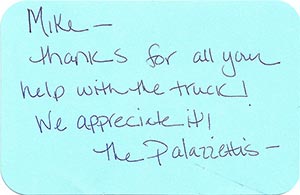 Mike—
Thanks for all your
help with the truck!
We appreciate it!
The Palazzettis—